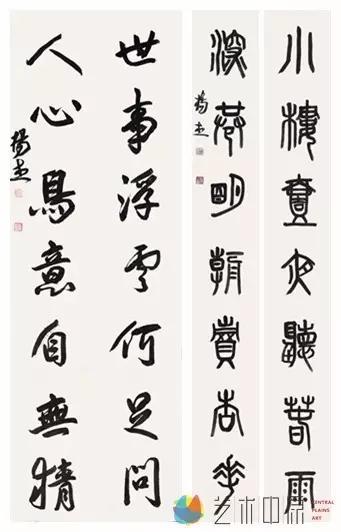 小樓壹夜聽春雨
深巷明朝賣杏花
世事浮雲何足問
人心鳥意自無情
艺术中原
CENTRAL
PLAINS
ART